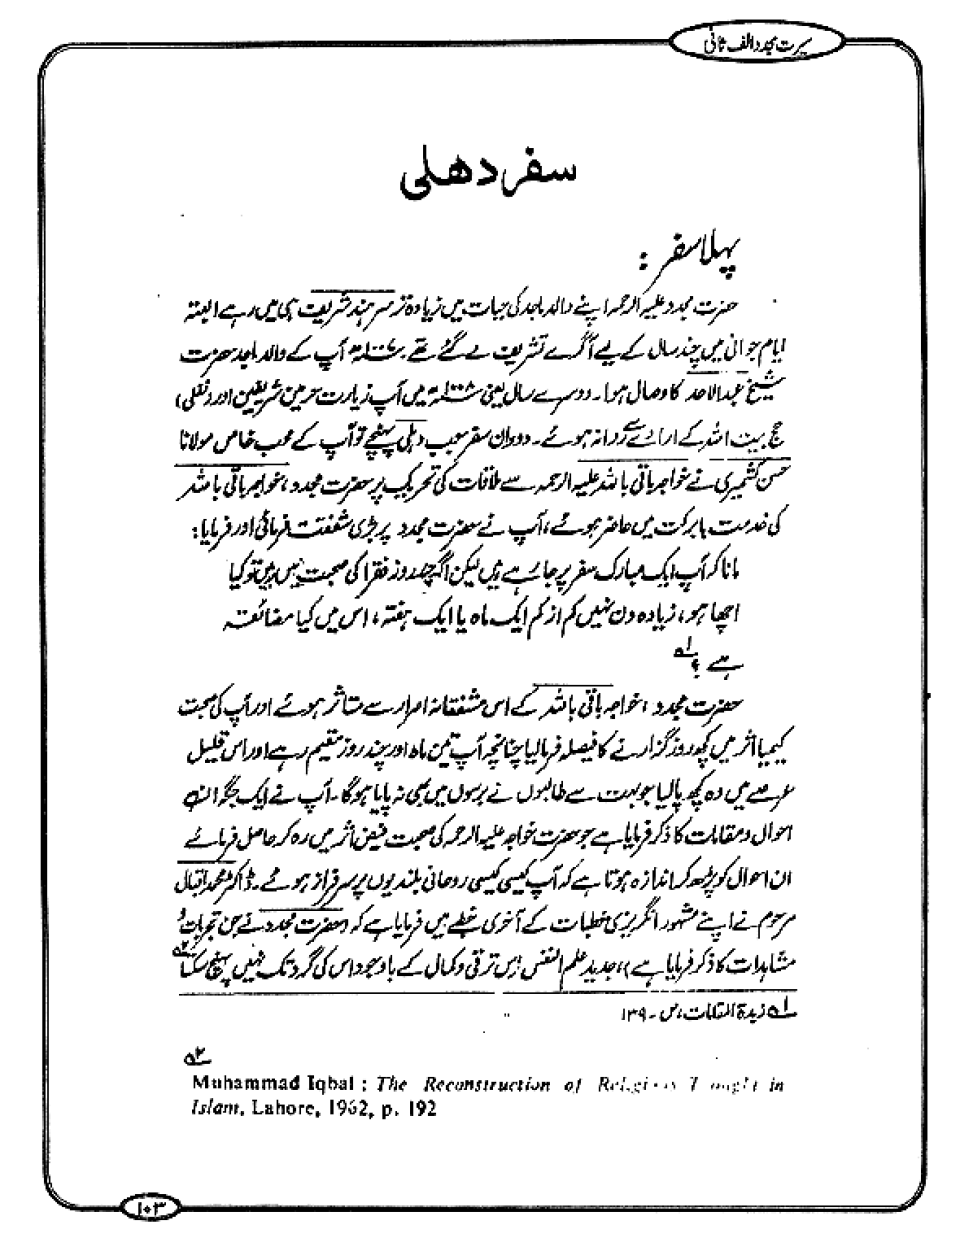 سیرت مجدد الف ثانی
سفر دھلی
پہلا سفر :
حضرت مجدد علیہ الرحمہ اپنے والد ماجد کی حیات میں زیادہ تر سرہند شریف ہی میں رہے البتہ
ایام جوانی میں چند سال کے لیے آگرے تشریف لے گئے تھے ۔ ۱۰۰۷ھ آپ کے والد ماجد حضرت
شیخ عبدالاحد کا وصال ہوا۔ دوسرے سال یعنی ۱۰۰۸ھ میں آپ زیارت حرمین شریفین اور (نفلی)
حج بیت اللہ کے ارادے سے روانہ ہوئے۔ دوران سفر جب دہلی پہنچے تو آپ کے محب خاص مولانا
حسن کشمیری نے خواجہ باقی باللہ علیہ الرحمہ سے ملاقات کی تحریک پر حضرت مجدد، خواجہ باقی باللہ
کی خدمت بابرکت میں حاضر ہوئے، آپ نے حضرت مجدد پر بڑی شفقت فرمائی اور فرمایا:
مانا کہ آپ ایک مبارک سفر پر جا رہے ہیں لیکن اگر چند روز فقرا کی صحبت میں رہیں تو کیا
اچھا ہو، زیادہ دن نہیں کم از کم ایک ماہ یا ایک ہفتہ، اس میں کیا مضائقہ
ہے ؟ ۵۱
حضرت مجدد، خواجہ باقی باللہ کے اس مشفقانہ اصرار سے متاثر ہوئے اور آپ کی صحبت
کیمیا اثر میں کچھ روز گزارنے کا فیصلہ فرمالیا چنانچہ آپ تین ماہ اور چند روز مقیم رہے اور اس قلیل
عرصے میں وہ کچھ پالیا جو بہت سے طالبوں نے برسوں میں بھی نہ پایا ہوگا۔ آپ نے ایک جگہ ان
احوال و مقامات کا ذکر فرمایا ہے جو حضرت خواجہ علیہ الرحمہ کی صحبت فیض اثر میں رہ کر حاصل فرمائے
ان احوال کو پڑھ کر اندازہ ہوتا ہے کہ آپ کیسی کیسی روحانی بلندیوں پر سرفراز ہوئے۔ ڈاکٹر محمد اقبال
مرحوم نے اپنے مشہور انگریزی خطبات کے آخری خطبے میں فرمایا ہے کہ (حضرت مجدد نے جن تجربات و
مشاہدات کا ذکر فرمایا ہے)، جدید علم النفس اس ترقی و کمال کے باوجود اس کی گرد تک نہیں پہنچ سکتا ۵۲
۵۱ زبدۃ المقامات، ص۔ ۱۳۹
۵۲
Muhammad Iqbal : The Reconstruction of Religious Thought in
Islam, Lahore, 1962, p. 192
۱۰۳